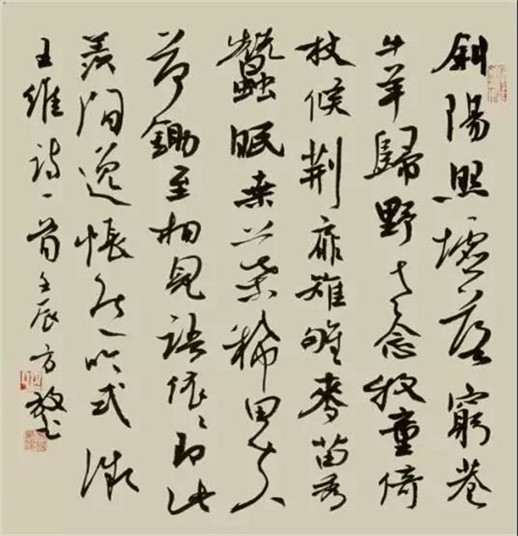 斜陽照墟落窮巷
牛羊歸野老念牧童倚
杖候荊扉雉雊麥苗秀
蠶眠桑葉稀田夫
荷鋤至相見語依々即此
羨閒逸悵然吟式微
王維詩一首壬辰方